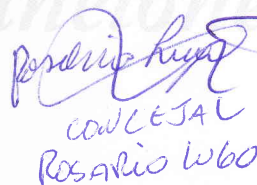 CONCEJAL
ROSARIO LUGO